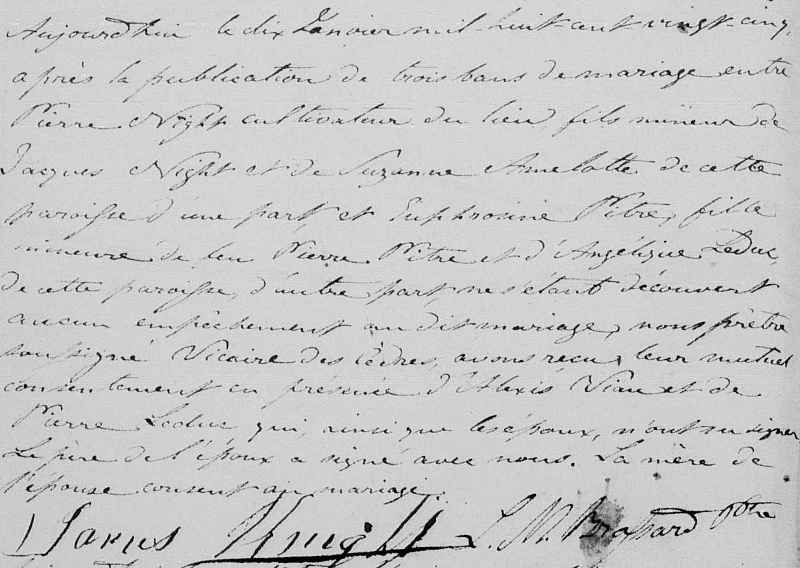 Aujourdhui le dix Janvier mil-huit-cent vingt-cinq,
après la publication de trois bans de mariage entre
Pierre Night cultivateur du lieu, fils mineur de
Jacques Night et de Suzanne Amelotte de cette
paroisse d'une part, et Euphrosine Pitre, fille
mineure de feu Pierre Pitre et d'Angélique Leduc
de cette paroisse, d'autre part, ne s'étant découvert
aucun empêchement au dit mariage, nous prêtre
soussigné Vicaire des Cèdres, avons reçu leur mutuel
consentement en présence d'Alexis Viau et de
Pierre Leduc qui, ainsi que les époux, n'ont su signer
Le père de l'époux a signé avec nous. La mère de
l'épouse consent au mariage.
Knight Brassard Ptre